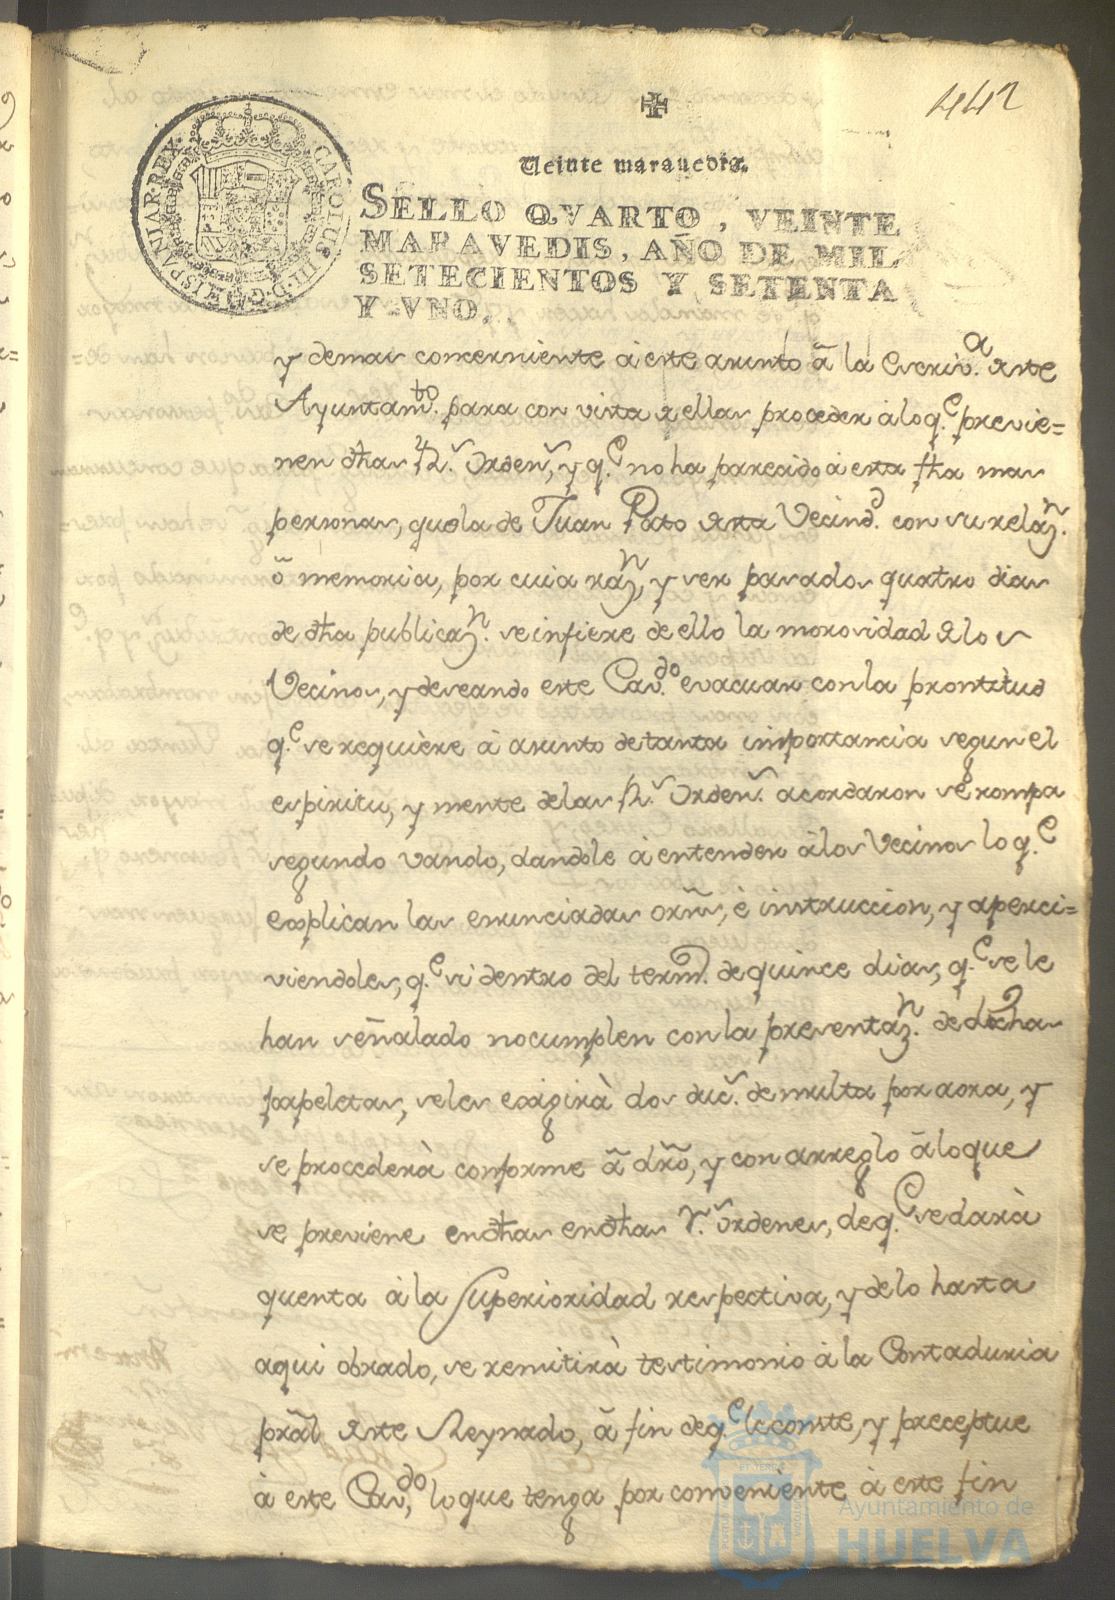 442
Veinte maravedis.
SELLO QVARTO, VEINTE
MARAVEDIS, AÑO DE MIL
SETECIENTOS Y SETENTA
Y VNO.
CAROLUS III D.G. HISPANIAR. REX
y demas concerniente â este asunto â la Escriv.a deste
Ayuntam.to para con vista de ellas proceder â lo q.e previe=
nen dhas R.s Orden.s, y q.e no ha parecido â esta fha mas
personas, que la de Juan Pato desta Vecind.d con su relaz.n
ô memoria, por cuia raz.n, y ser pasados quatro dias
de dha publicaz.n se infiere de ello la morosidad de los
Vecinos, y deseando este Cav.do evacuar con la prontitud
q.e se requiere â asunto de tanta importancia segun el
espiritu, y mente de las R.s Orden.s acordaron se rompa
segundo vando, dandole â entender â los Vecinos lo q.e
explican las enunciadas orns, é instruccion, y aperci=
viendoles, q.e si dentro del term.o de quince dias, q.e se le
han señalado no cumplen con la presentaz.n de dchas
papeletas, se les exigirà dos duc.s de multa por aora, y
se procederà conforme â dro, y con arreglo â lo que
se previene en dhas en dhas r.s ordenes, de q.e se darà
quenta â la Superioridad respectiva, y de lo hasta
aqui obrado, se remitirà testimonio â la Contaduria
pral deste Reynado, â fin de q.e le conste, y preceptue
â este Cav.do, lo que tenga por conveniente â este fin
Ayuntamiento de
HUELVA